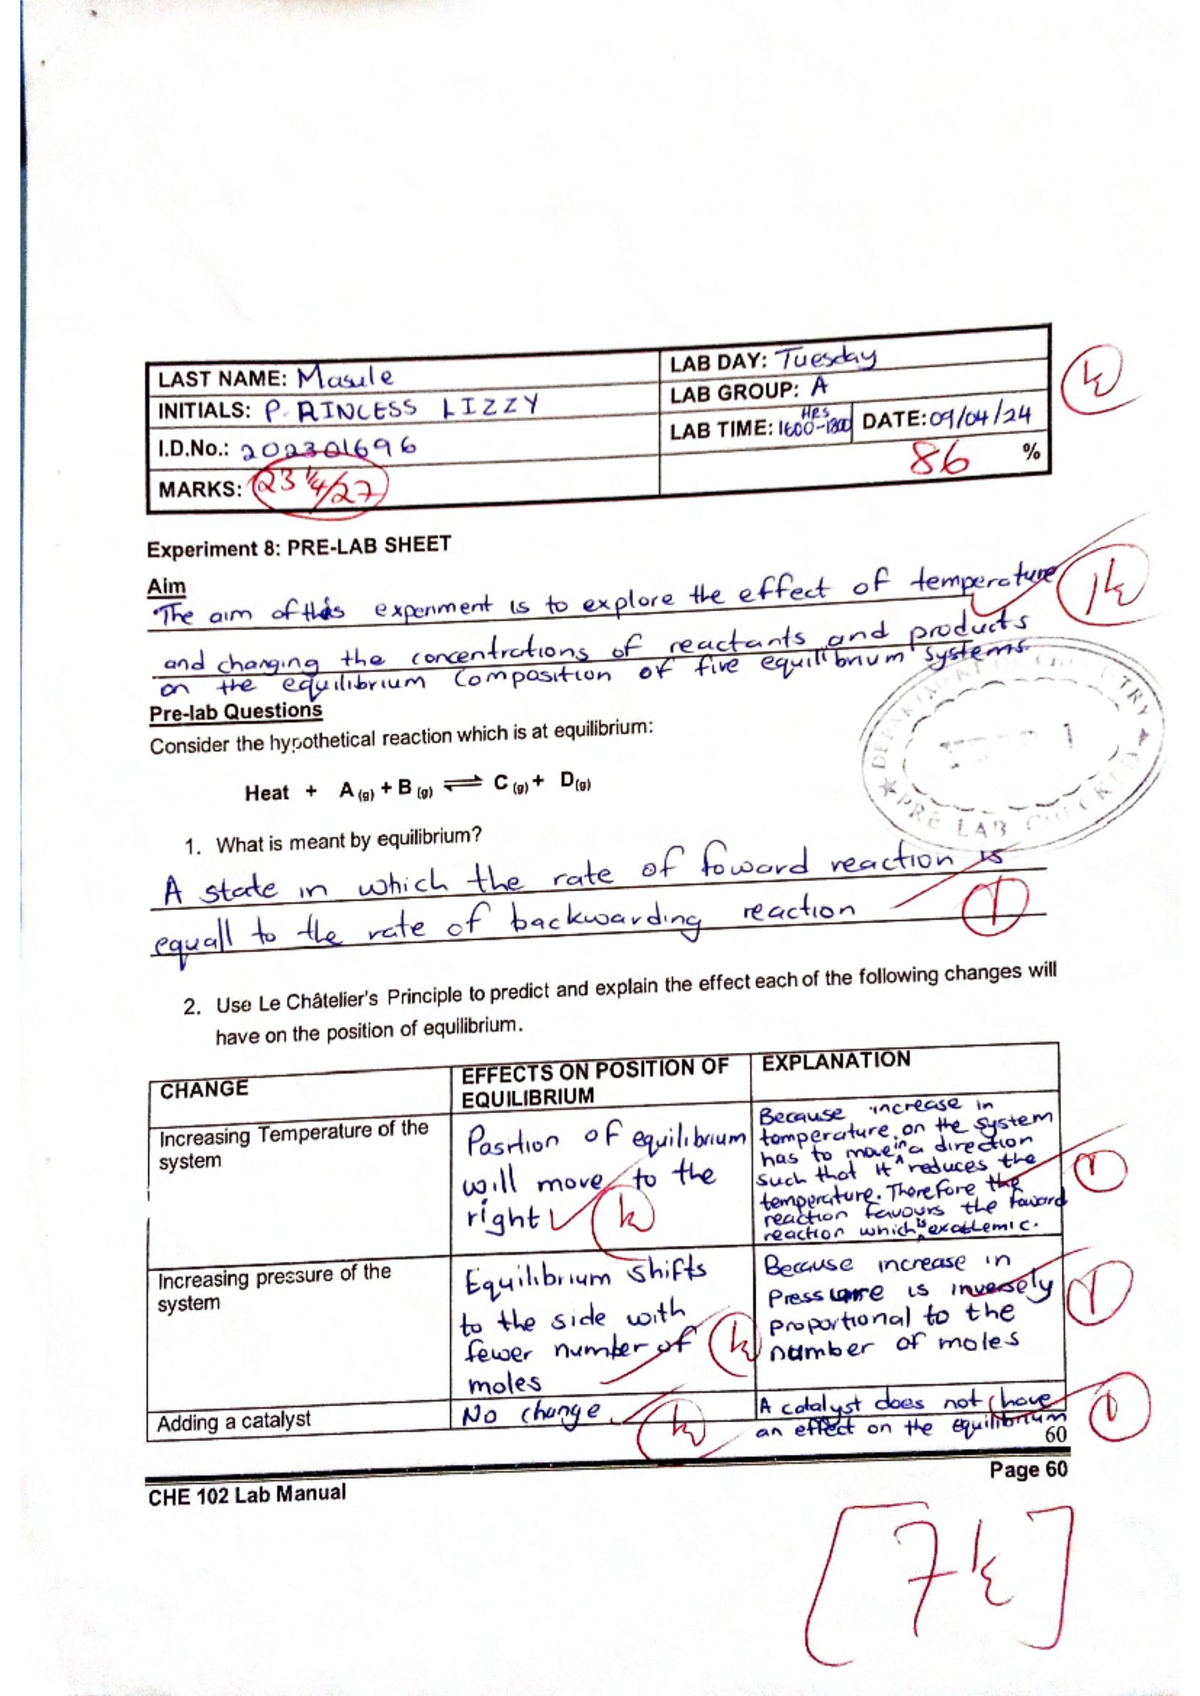 LAST NAME: Masule
LAB DAY: Tuesday
INITIALS: P. RINCESS LIZZY
LAB GROUP: A
I.D.No.: 202301696
LAB TIME: 1600-1800 HRS DATE: 09/04/24
MARKS: 23 1/4/27
86 %
1/2
Experiment 8: PRE-LAB SHEET
Aim
The aim of this experiment is to explore the effect of temperature
and changing the concentrations of reactants and products
on the equilibrium composition of five equilibrium systems.
1 1/2
Pre-lab Questions
Consider the hypothetical reaction which is at equilibrium:
Heat + A (g) + B (g) ⇌ C (g) + D(g)
PRE LAB CHECKED
1. What is meant by equilibrium?
A state in which the rate of foward reaction is
equall to the rate of backwarding reaction
1
2. Use Le Châtelier's Principle to predict and explain the effect each of the following changes will
have on the position of equilibrium.
CHANGE
EFFECTS ON POSITION OF
EQUILIBRIUM
EXPLANATION
Increasing Temperature of the
system
Position of equilibrium
will move to the
right
1/2
Because increase in
temperature on the system
has to move in a direction
such that it reduces the
temperature. Therefore the
reaction favours the foward
reaction which is exothemic.
1
Increasing pressure of the
system
Equilibrium shifts
to the side with
fewer number of
moles
1/2
Because increase in
Pressure is inversely
proportional to the
number of moles
1
Adding a catalyst
No change
1/2
A catalyst does not have
an effect on the equilibrium
1
60
Page 60
CHE 102 Lab Manual
[7 1/2]